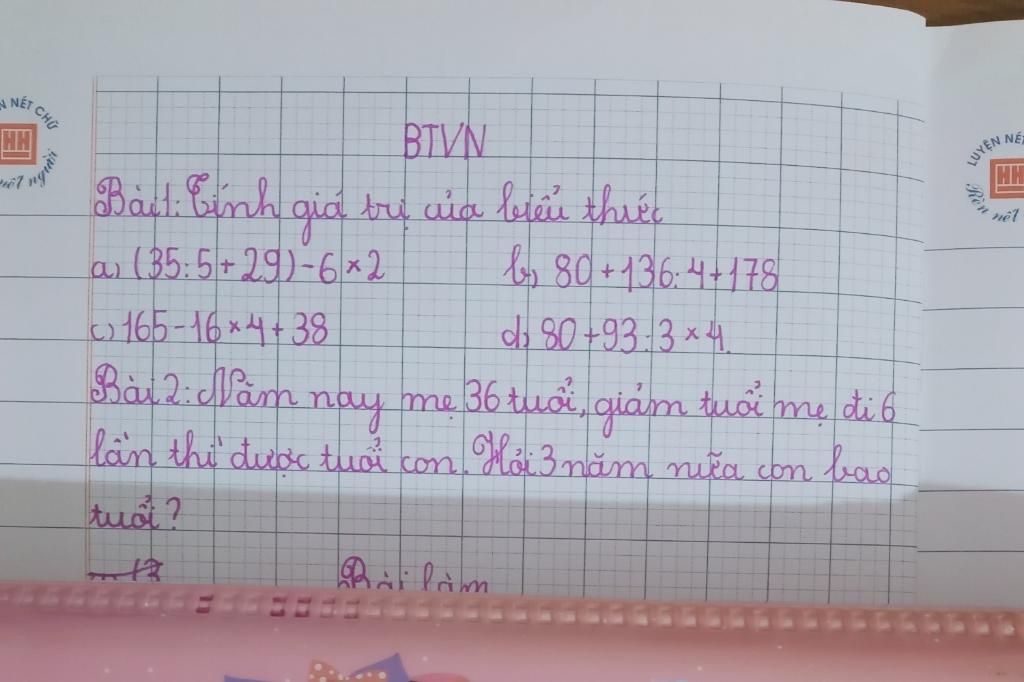 BTVN
Bài 1: Tính giá trị của biểu thức
a) (35 : 5 + 29) - 6 × 2
b) 80 + 136 : 4 + 178
c) 165 - 16 × 4 + 38
d) 80 + 93 : 3 × 4.
Bài 2: Năm nay mẹ 36 tuổi, giảm tuổi mẹ đi 6
lần thì được tuổi con. Hỏi 3 năm nữa con bao
tuổi?
Bài làm
N NÉT CHỮ
HH
nết người
LUYỆN NÉT
HH
Rèn nết